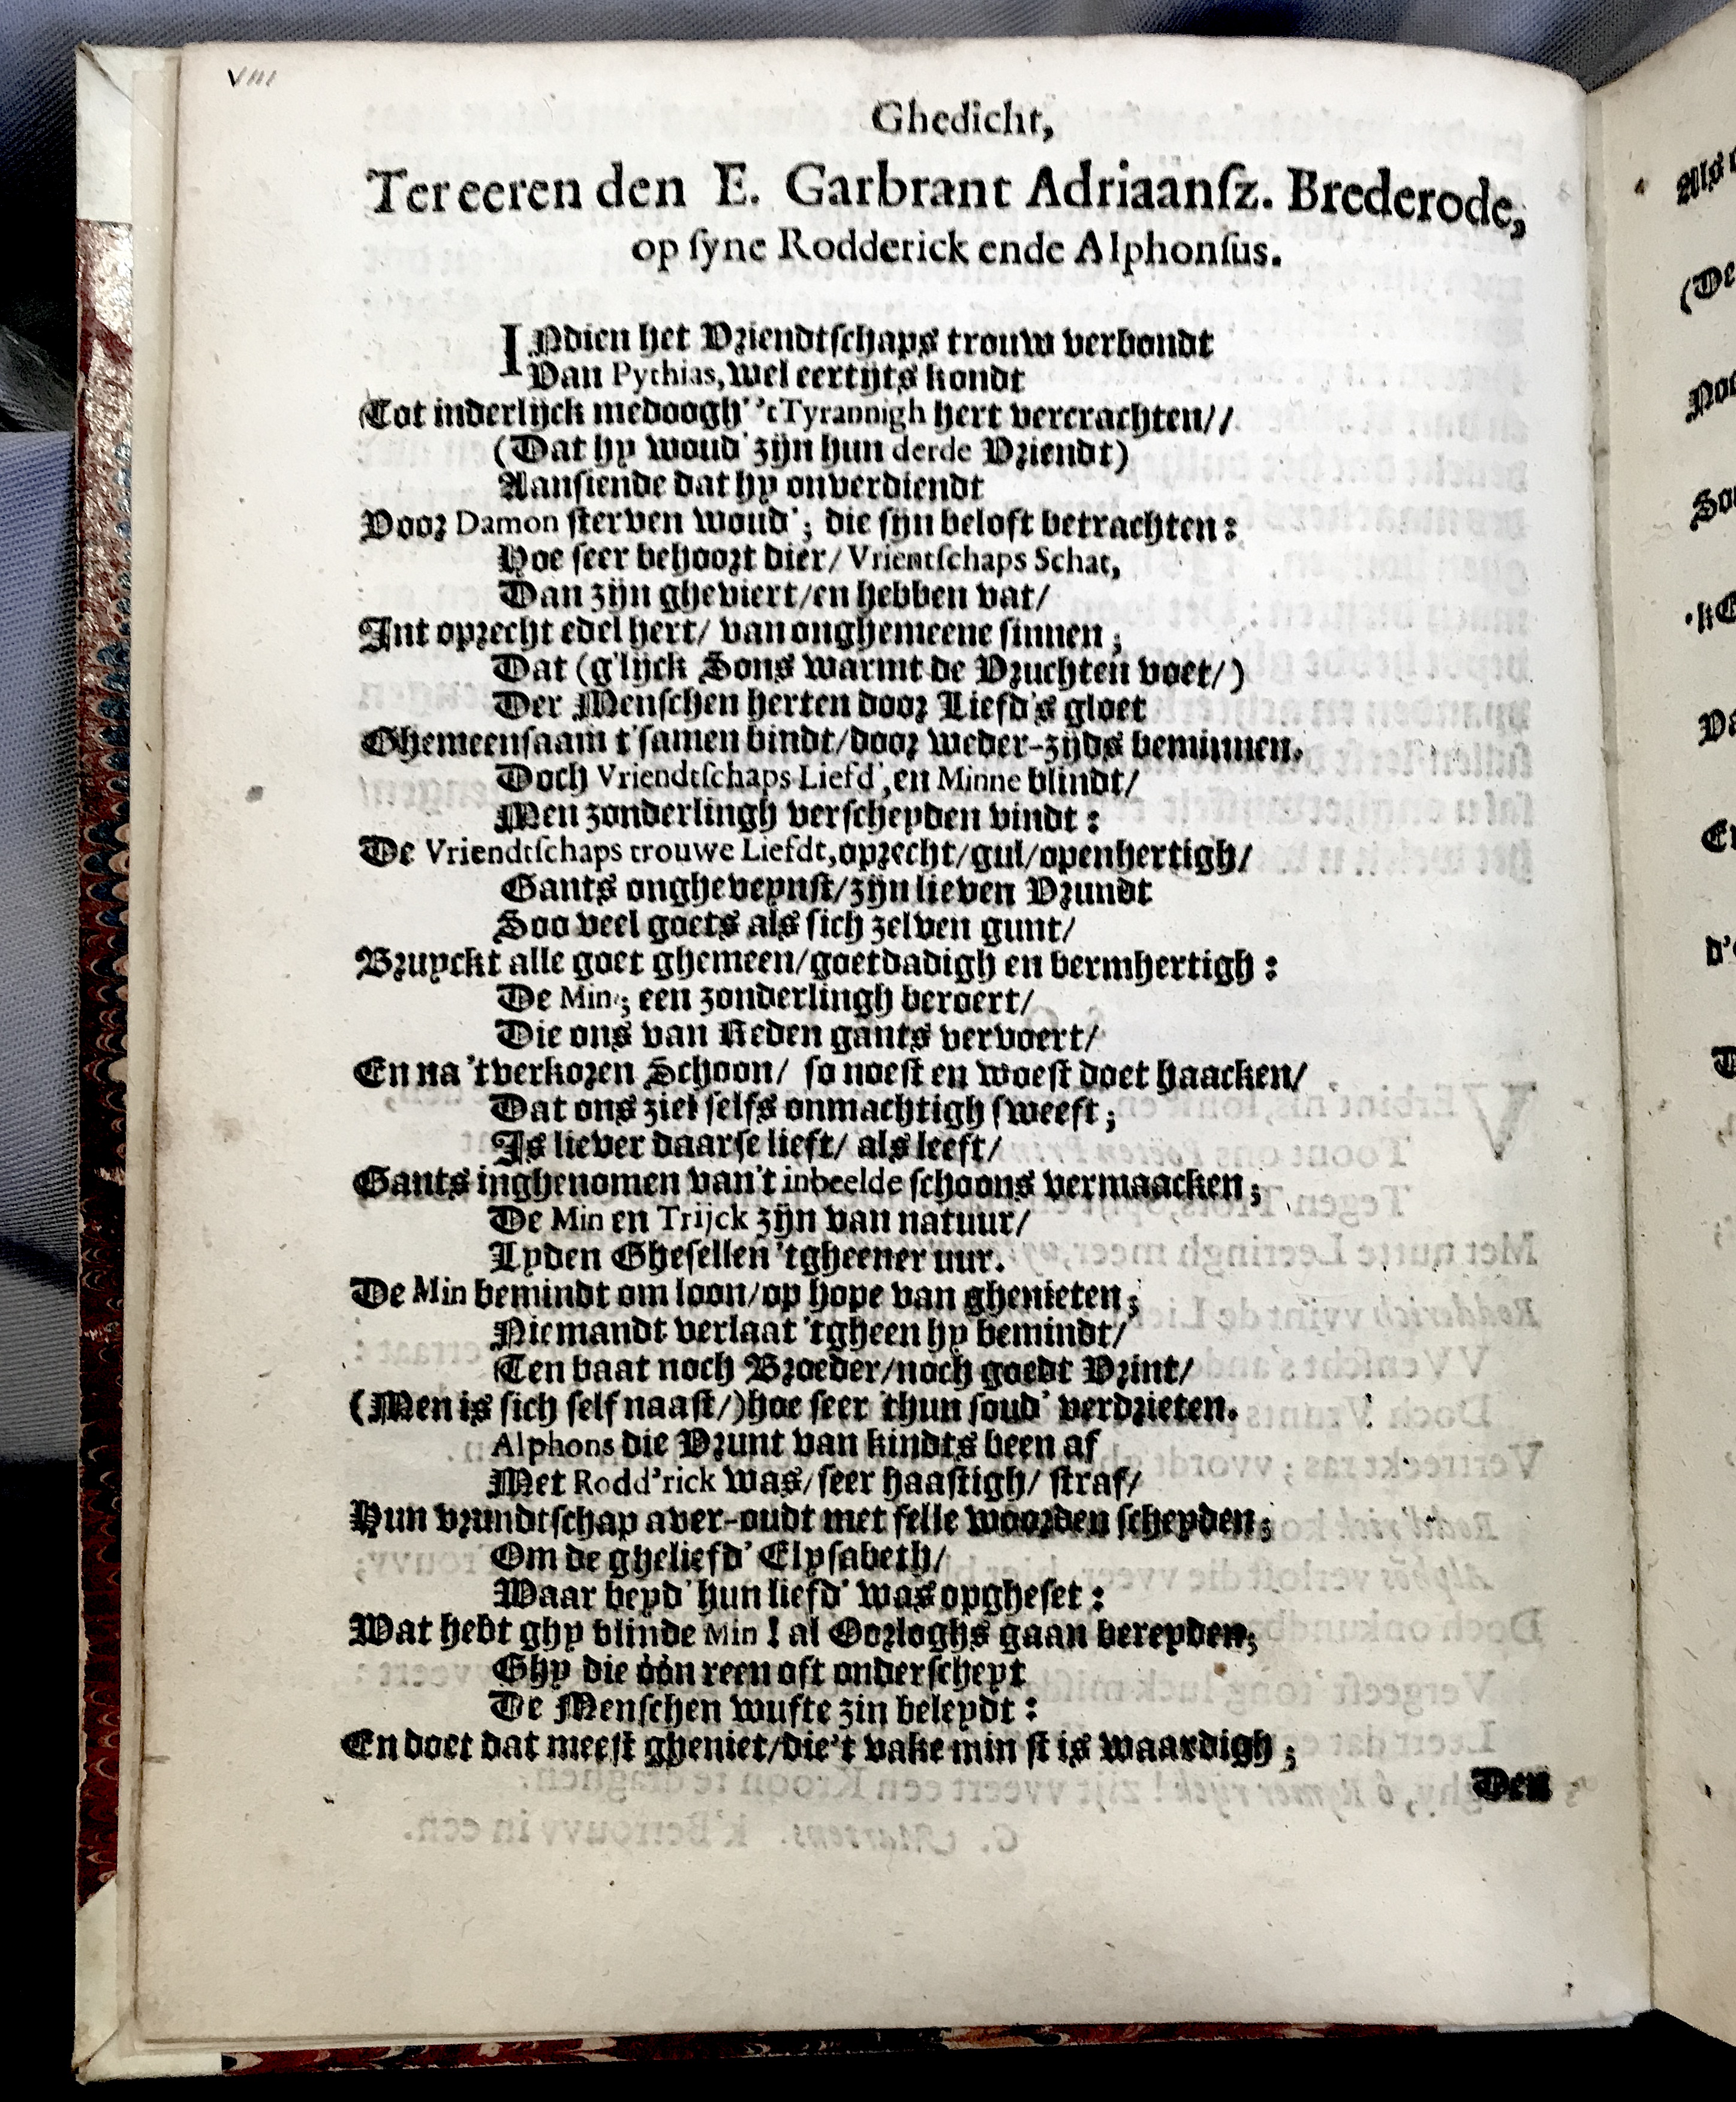 VIII
Ghedicht,
Ter eeren den E. Garbrant Adriaansz. Brederode,
op syne Rodderick ende Alphonsus.
INdien het Vriendtschaps trouw verbondt
Van Pythias, wel eertijts kondt
Tot inderlijck medoogh' 't Tyrannigh hert vercrachten//
(Dat hy woud' zijn hun derde Vriendt)
Aansiende dat hy onverdiendt
Voor Damon sterven woud'; die sijn beloft betrachten:
Hoe seer behoort dier/ Vrientschaps Schat,
Dan zijn gheviert/en hebben vat/
Int oprecht edel hert/ van onghemeene sinnen;
Dat (g'lijck Sons warmt de Vruchten voet/)
Der Menschen herten door Liefd's gloet
Ghemeensaam t'samen bindt/door weder-zijds beminnen.
Doch Vriendtschaps Liefd', en Minne blindt/
Men zonderlingh verscheyden vindt:
De Vriendtschaps trouwe Liefdt, oprecht/gul/openhertigh/
Gants onghevey​nst/zijn lieven Vrundt
Soo veel goets als sich zelven gunt/
Bruyckt alle goet ghemeen/goetdadigh en bermhertigh:
De Min; een zonderlingh beroert/
Die ons van Reden gants vervoert/
En na 'tverkoren Schoon/ so noest en woest doet haacken/
Dat ons ziel selfs onmachtigh sweeft;
Is liever daarse lieft/ als leeft/
Gants inghenomen van't inbeelde schoons vermaacken;
De Min en Trijck zijn van natuur/
Lyden Ghesellen 'tgheener uur.
De Min bemindt om loon/op hope van ghenieten;
Niemandt verlaat 'tgheen hy bemindt/
Ten baat noch Broeder/noch goedt Vrint/
(Men is sich self naast/)hoe seer 'thun soud' verdrieten.
Alphons die Vrunt van kindts been af
Met Rodd'rick was/seer haastigh/ straf/
Hun vrundtschap aver-oudt met felle woorden scheyden;
Om de gheliefd' Elysabeth/
Waar beyd' hun liefd' was opgheset:
Wat hebt ghy blinde Min! al Oorloghs gaan bereyden;
Ghy die óón reen oft onderscheyt
De Menschen wufte zin beleydt:
En doet dat meest gheniet/die't vake min st is waardigh;
Den